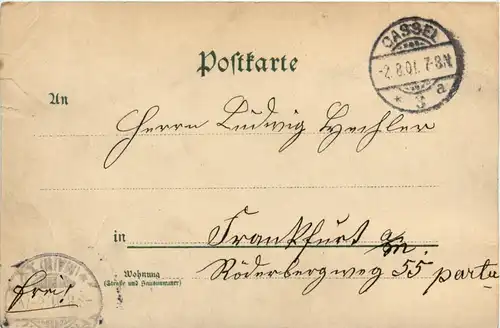 CASSEL
-2.8.01. 7-8N
* 3 a
Postkarte
An
Herrn Ludwig Hechler
in Frankfurt a/m.
Wohnung
(Straße und Hausnummer)
Röderbergweg 55 parte
frei!